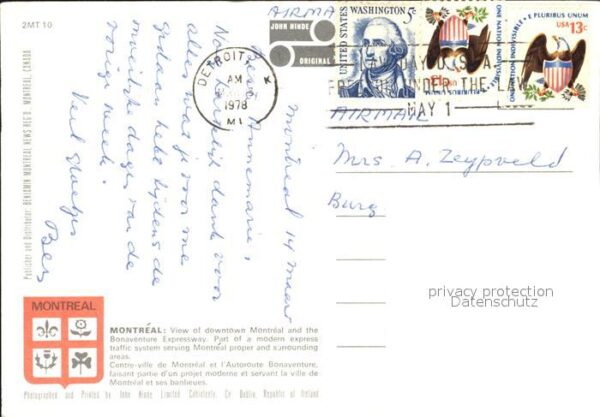 2MT 10
AIRMA
JOHN HINDE
ORIGINAL
UNITED STATES
WASHINGTON 5c
E PLURIBUS UNUM
ONE NATION INDIVISIBLE
E PLURIBUS UNUM
ONE NATION INDIVISIBLE
USA
13c
DETROIT
AM
1978
MI
LAW DAY U.S.A.
FREEDOM UNDER THE LAW
MAY 1
AIRMAIL
Mrs. A. Zeypveld
Burg
Montreal 14 maart
Annemarie,
Nog hartelijk dank voor
alles wat je voor me
gedaan hebt tijdens de
moeilijke dagen van de
vorige week.
Veel groetjes
Bers
Publisher and Distributor: BENJAMIN MONTREAL NEWS REG'D. MONTREAL, CANADA
privacy protection
Datenschutz
MONTREAL
MONTRÉAL: View of downtown Montréal and the
Bonaventure Expressway. Part of a modern express
traffic system serving Montréal proper and surrounding
areas.
Centre-ville de Montréal et l'Autoroute Bonaventure,
faisant partie d'un projet moderne et servant la ville de
Montréal et ses banlieues.
Photographed and Printed by John Hinde Limited Cabinteely, Co Dublin, Republic of Ireland